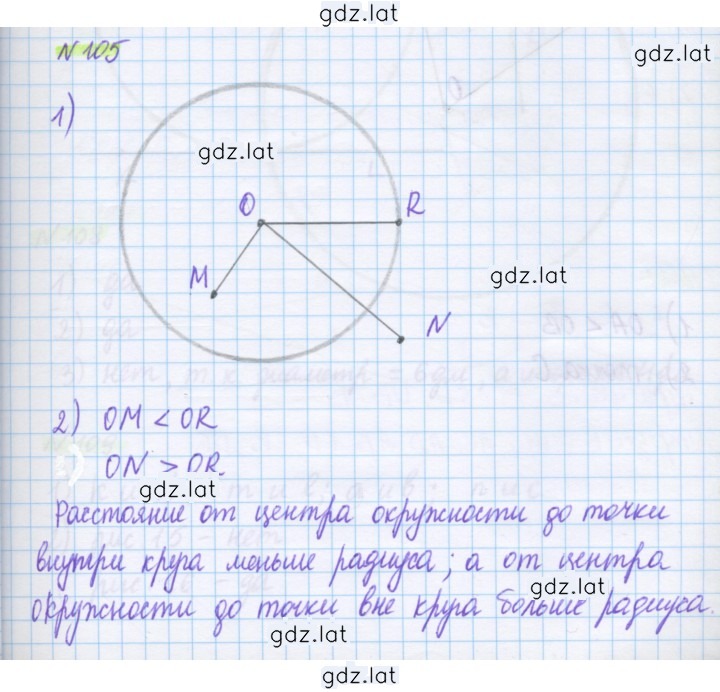 gdz.lat
№105
gdz.lat
1)
gdz.lat
O R
M
gdz.lat
N
2) OM < OR
ON > OR.
gdz.lat
Расстояние от центра окружности до точки
внутри круга меньше радиуса; а от центра
gdz.lat
окружности до точки вне круга больше радиуса.
gdz.lat
gdz.lat